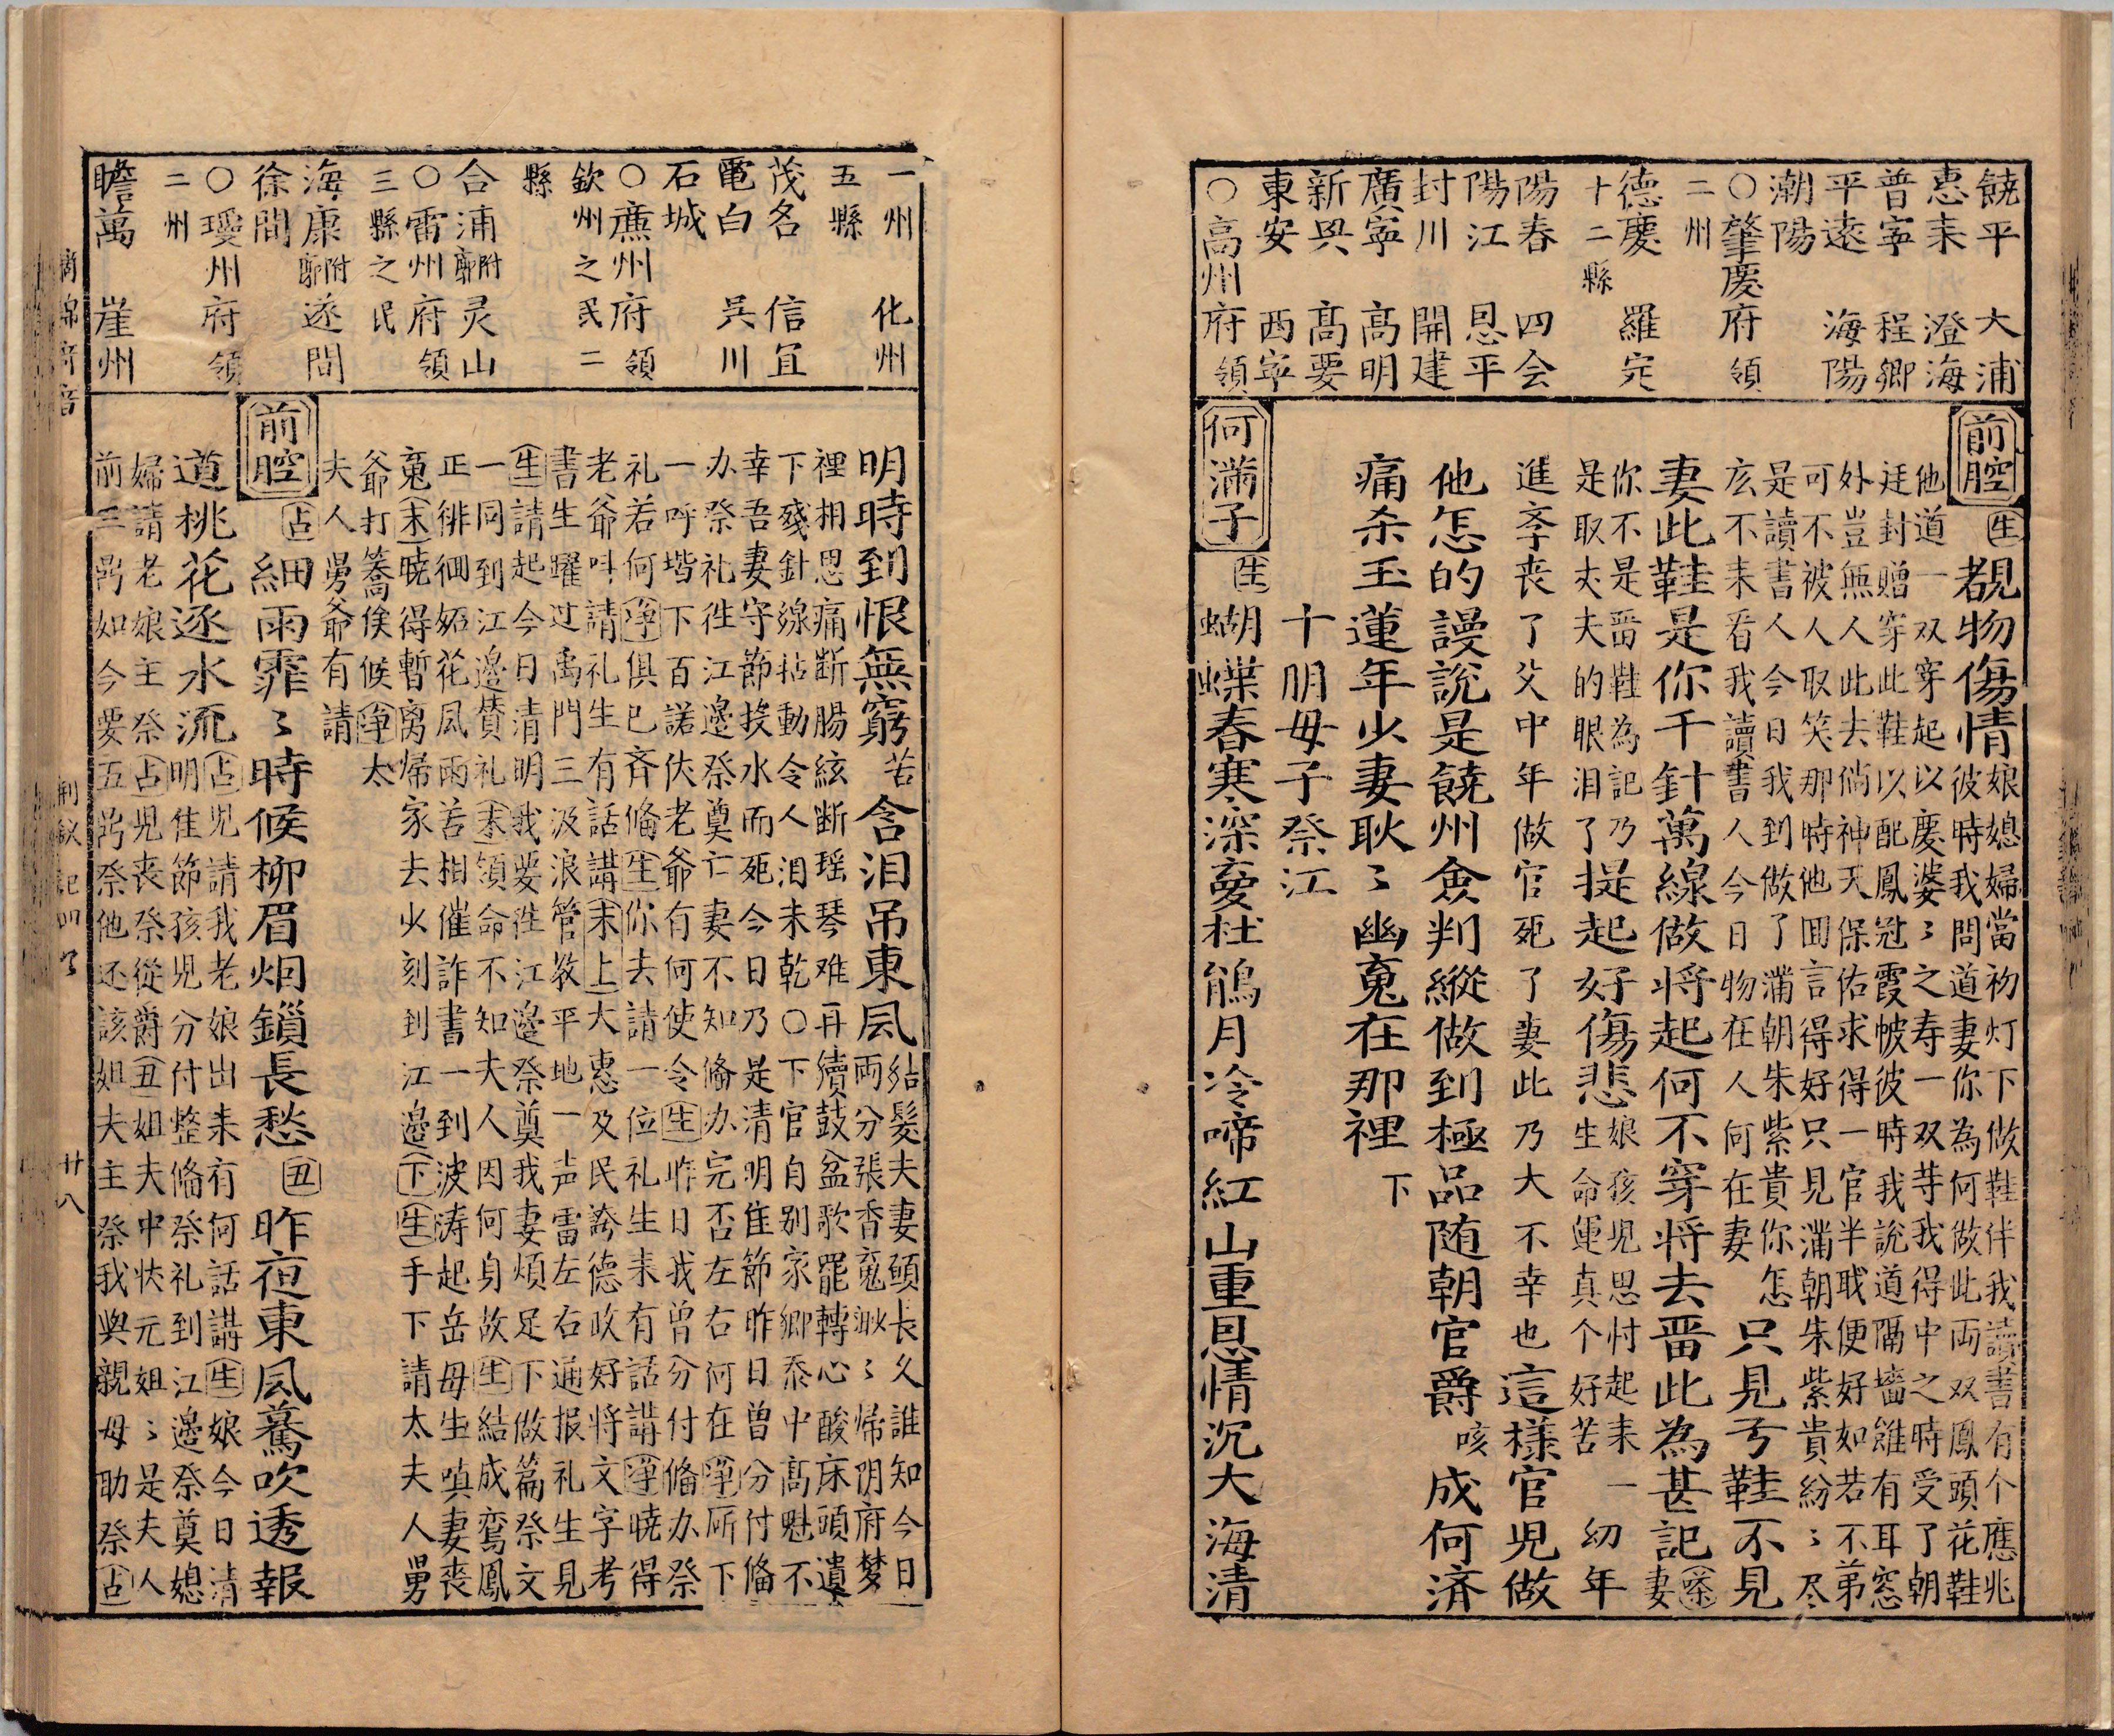 饒平 大浦
惠来 澄海
普寧 程鄉
平遠 海陽
潮陽
○肇慶府領
二州
德慶 羅定
十二縣
陽春 四会
陽江 恩平
封川 開建
廣寧 高明
新興 高要
東安 西寧
○高州府領
前腔 生 覩物傷情
娘媳婦當初灯下做鞋伴我讀書有个應兆
彼時我問道妻你為何做此両双鳳頭花鞋
他道一双穿起以慶婆〻之寿一双䓁我得中之時受了朝
廷封贈穿此鞋以配鳳冠霞帔彼時我說道隔墻雖有耳窓
外豈無人此去倘神天保佑求得一官半职便好如若不弟
可不被人取笑那時他囬言得好只見滿朝朱紫貴紛〻尽
是讀書人今日我到做了滿朝朱紫貴你怎
庅不来看我讀書人今日物在人何在妻
只見亏鞋不見
妻此鞋是你千針萬線做将起何不穿将去畱此為甚記 妻
你不是畱鞋為記乃
是取丈夫的眼泪了
提起好傷悲
娘孩児思忖起来一
生命運真个好苦 幼年
進李丧了父中年做官死了妻此乃大不幸也這様官児做
他怎的謾説是饒州僉判縱做到極品随朝官爵 咳 成何済
痛杀玉蓮年少妻耿〻幽䰟在那裡 下
十朋母子祭江
何滿子 生 蝴蝶春寒深憂杜鵑月冷啼紅山重恩情沉大海清
一州 化州
五縣
茂名 信宜
電白 吳川
石城
○廉州府領
欽州之民二
縣
合浦附郭 灵山
○雷州府領
三縣之民
海康附郭 遂間
徐間
○瓊州府領
二州
瞻萬 崖州
明時到恨無窮 苦 含泪吊東风
結髮夫妻頭長久誰知今日
両分張香䰟渺〻帰阴府梦
裡相思痛断腸絃断瑶琴难再續鼓盆歌罷轉心酸床頭遺
下殘針線拈動令人泪未乾○下官自别家鄉忝中高魁不
幸吾妻守節投水而死今日乃是清明佳節昨日曾分付俻
办祭礼徃江邊祭奠亡妻不知俻办完否左右何在 净 㪽下
一呼堦下百諾伏老爷有何使令 生 昨日我曾分付俻办祭
礼若何 净 俱已斉俻 生 你去請一位礼生来有話講 净 暁得
老爷呌請礼生有話講 末上 大惠及民誇德政好将文字考
書生躍过禹門三汲浪管教平地一声雷左右通报礼生見
生 請起今日清明我要徃江邊祭奠我妻煩足下做篇祭文
一同到江邊賛礼 末 領命不知夫人因何身故 生 結成鸞鳳
正徘徊妬花风雨苦相催詐書一到波涛起岳母生嗔妻丧
䰟 末 暁得暫离帰家去火刻到江邊 下 生 手下請太夫人舅
爷打喬俟候 净 太
夫人舅爷有請
前腔 占 細雨霏〻時候柳眉烟鎻長愁 丑 昨夜東风驀吹透報
道桃花逐水流
占 児請我老娘出来有何話講 生 娘今日清
明佳節孩児分付整俻祭礼到江邊祭奠媳
婦請老娘主祭 占 児丧祭從爵 丑 姐夫中状元姐〻是夫人
前三䇿如今要五䇿祭他还該姐夫主祭我與親母助祭 占
荆釵記四卷
廿八